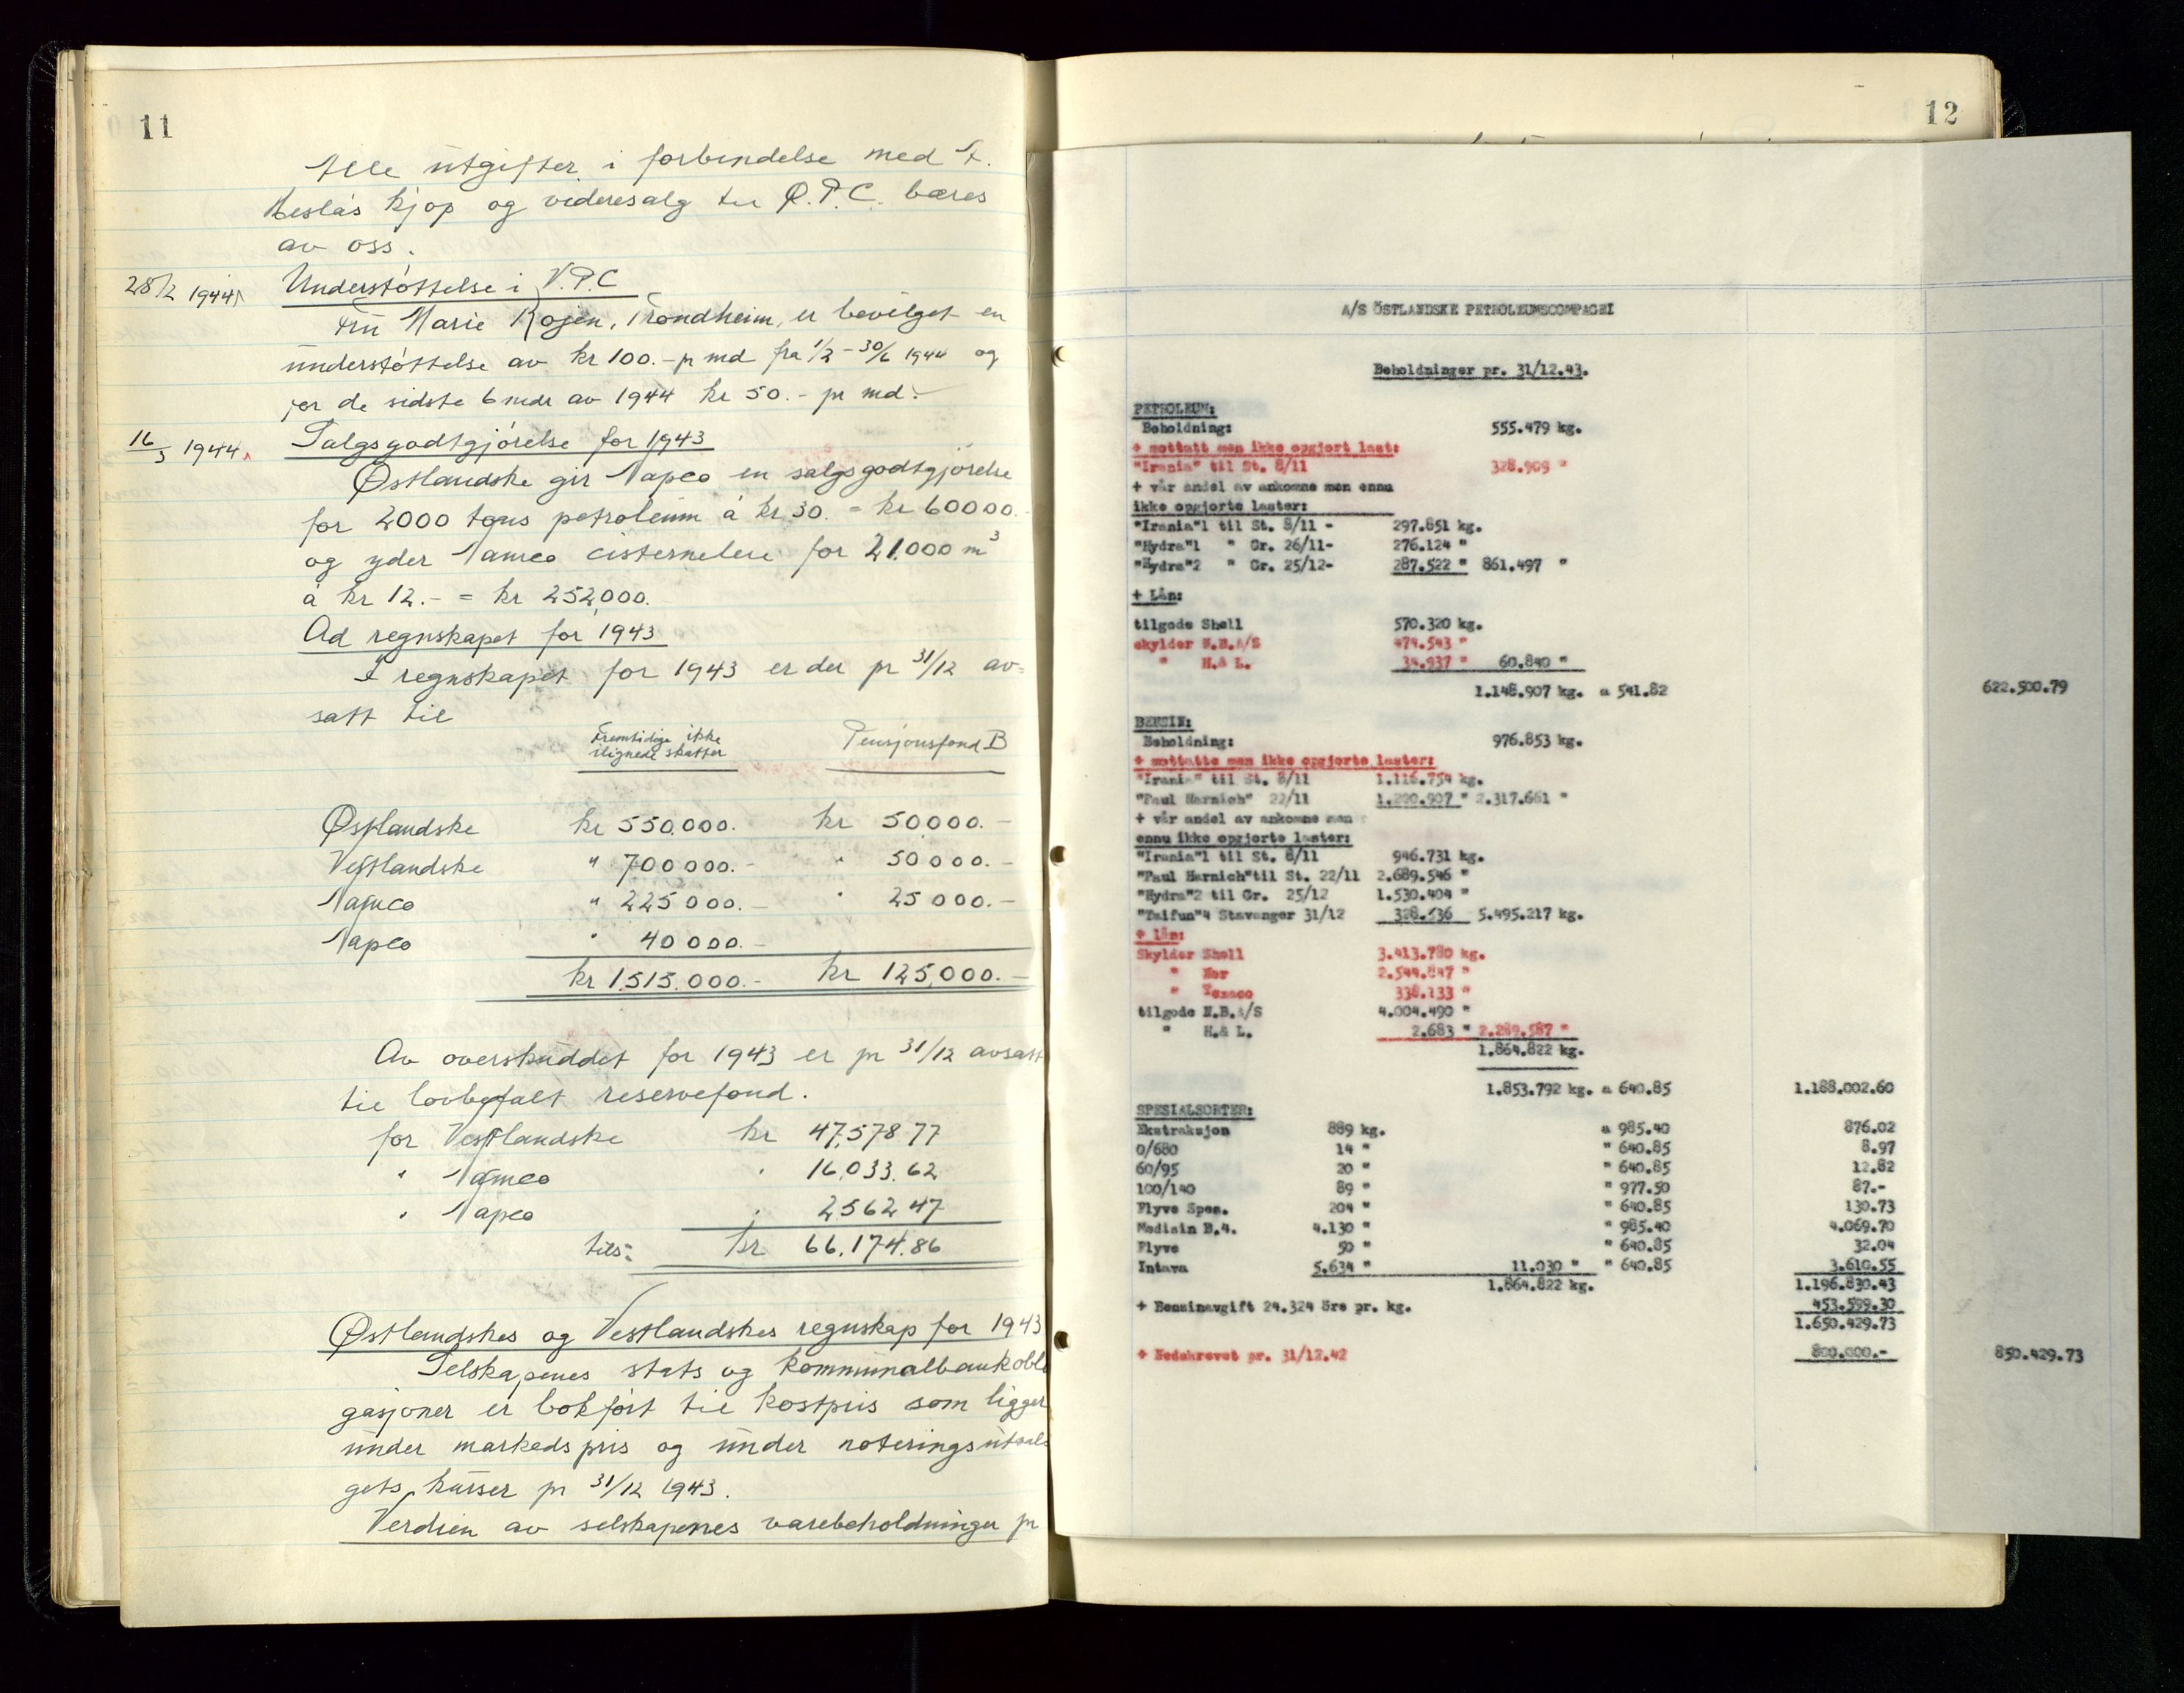 11
Alle utgifter i forbindelse med A.
kjøp og videresalg til Ø.P.C. bæres
av oss.
28/2 1944 Understøttelse i V.P.C
Fru Marie Rojen, Trondheim, er bevilget en
understøttelse av kr 100.- pr md fra 1/2 - 30/6 1944 og
for de sidste 6 mdr av 1944 kr 50.- pr md.-
16/3 1944 Salgsgodtgjørelse for 1943
Østlandske gir Napco en salgsgodtgjørelse
for 2000 tons petroleum à kr 30. = kr 60000.-
og yder Namco cisterneleie for 21.000 m3
à kr 12.- = kr 252,000.
Ad regnskapet for 1943
I regnskapet for 1943 er der pr 31/12 av-
satt til
Fremtidige ikke Pensjonsfond B
ilignede skatter
Østlandske kr 550.000.- kr 50.000.-
Vestlandske " 700000.- " 50000.-
Namco " 225000.- " 25000.-
Napco " 40000.-
kr 1.515.000.- kr 125,000.-
Av overskuddet for 1943 er pr 31/12 avsatt
til lovbefalt reservefond.
for Vestlandske kr 47,578 77
" Namco " 16,033.62
" Napco " 2562 47
tils: kr 66.174.86
Østlandskes og Vestlandskes regnskap for 1943
Selskapenes stats og kommunalbankobli
gasjoner er bokført til kostpris som ligger
under markedspris og under noteringsutval
gets kurser pr 31/12 1943.
Verdien av selskapenes varebeholdninger pr
12
A/S ÖSTLANDSKE PETROLEUMSCOMPAGNI
Beholdninger pr. 31/12.43.
PETROLEUM:
Beholdning: 555.479 kg.
+ mottatt men ikke opgjort last:
"Irania" til St. 8/11 328.909 "
+ vår andel av ankomne men ennu
ikke opgjorte laster:
"Irania"1 til St. 8/11 - 297.851 kg.
"Hydra"1 " Gr. 26/11- 276.124 "
"Hydra"2 " Gr. 25/12- 287.522 " 861.497 "
+ Lån:
tilgode Shell 570.320 kg.
skylder N.B.A/S 474.543 "
" H.& L. 34.937 " 60.840 "
1.148.907 kg. a 541.82 622.500.79
BENSIN:
Beholdning: 976.853 kg.
+ mottatte men ikke opgjorte laster:
"Irania" til St. 8/11 1.116.754 kg.
"Paul Harnich" 22/11 1.200.907 " 2.317.661 "
+ vår andel av ankomne men
ennu ikke opgjorte laster:
"Irania"1 til St. 8/11 946.731 kg.
"Paul Harnich"til St. 22/11 2.689.546 "
"Hydra"2 til Gr. 25/12 1.530.404 "
"Taifun"4 Stavanger 31/12 328.536 5.495.217 kg.
+ lån:
Skylder Shell 3.413.780 kg.
" Nor 2.544.847 "
" Texaco 338.133 "
tilgode N.B.A/S 4.004.490 "
" H.& L. 2.683 " 2.289.587 "
1.864.822 kg.
1.853.792 kg. a 640.85 1.188.002.60
SPESIALSORTER:
Ekstraksjon 889 kg. a 985.40 876.02
0/680 14 " " 640.85 8.97
60/95 20 " " 640.85 12.82
100/140 89 " " 977.50 87.-
Flyve Spes. 204 " " 640.85 130.73
Medisin B.4. 4.130 " " 985.40 4.069.70
Flyve 50 " " 640.85 32.04
Intava 5.634 " 11.030 " " 640.85 3.610.55
1.864.822 kg. 1.196.830.43
+ Bensinavgift 24.324 öre pr. kg. 453.599.30
1.650.429.73
+ Nedskrevet pr. 31/12.42 800.000.- 850.429.73